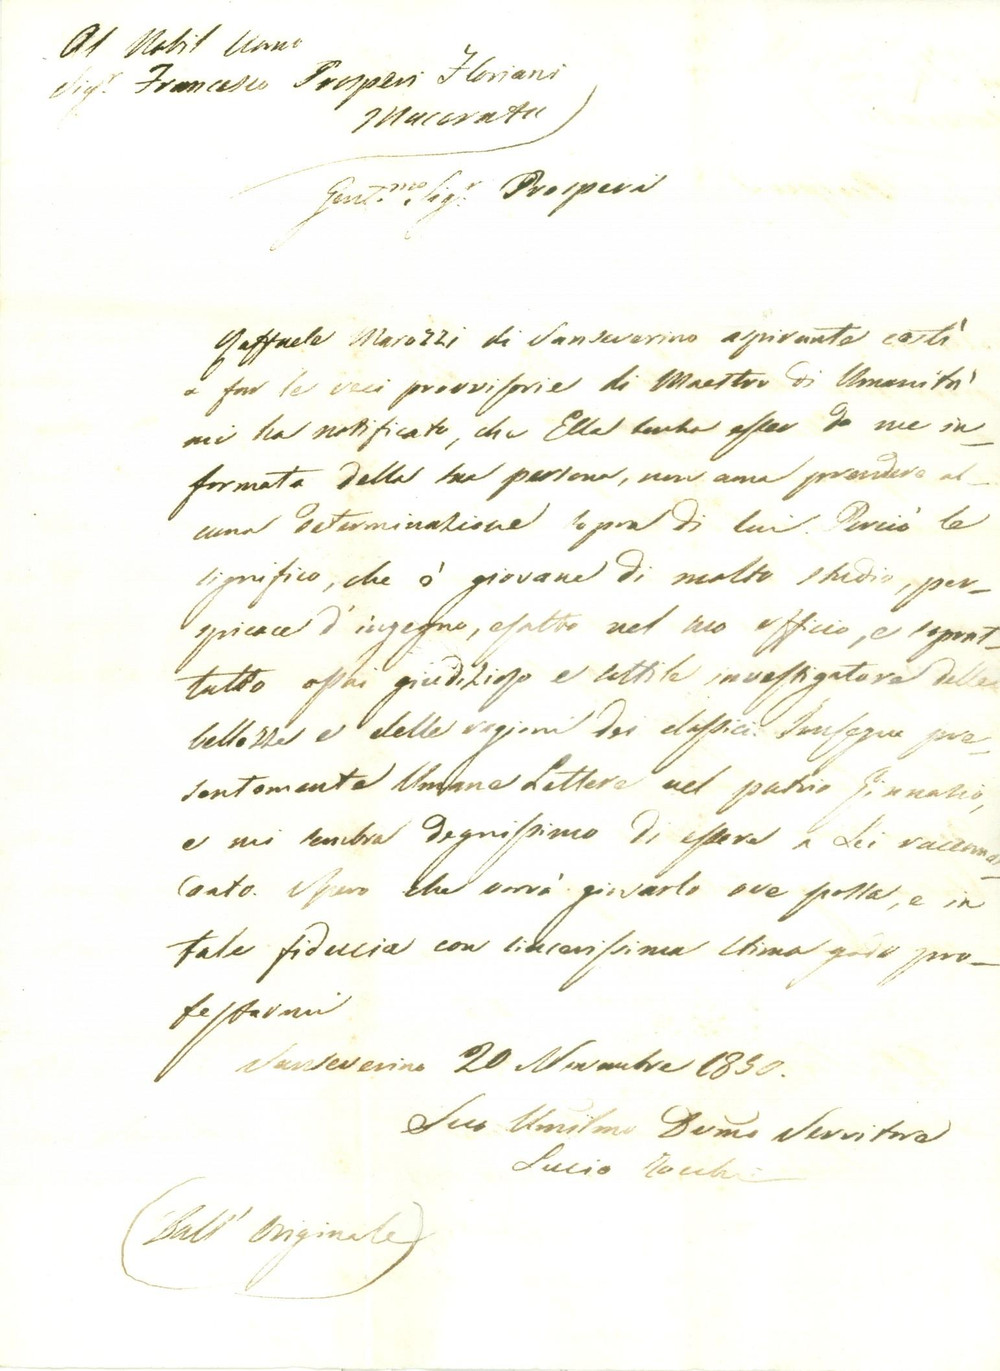 Al Nobil Uomo
Sig.r Francesco Prosperi Floriani
Macerata
Gent.mo Sig.r Prosperi
Raffaele Marozzi di Sanseverino aspirante costì
a far le veci provvisorie di Maestro di Umanità
mi ha notificato, che Ella senza esser da me in-
formata della sua persona, non ama prendere al-
cuna determinazione sopra di lui. Perciò le
significo, che è giovane di molto studio, per-
spicace d'ingegno, esatto nel suo officio, e soprat-
tutto assai giudizioso e sottile investigatore delle
bellezze e delle ragioni dei classici. Insegna pre-
sentemente Umane Lettere nel patrio Ginnasio,
e mi sembra degnissimo di essere a Lei raccoman-
dato. Spero che vorrà giovarlo ove possa, e in
tale fiducia con sincerissima stima godo pro-
fessarmi
Sanseverino 20 Novembre 1850.
Suo Umilmo Devmo Servitore
Lucio
(Dall' Originale)